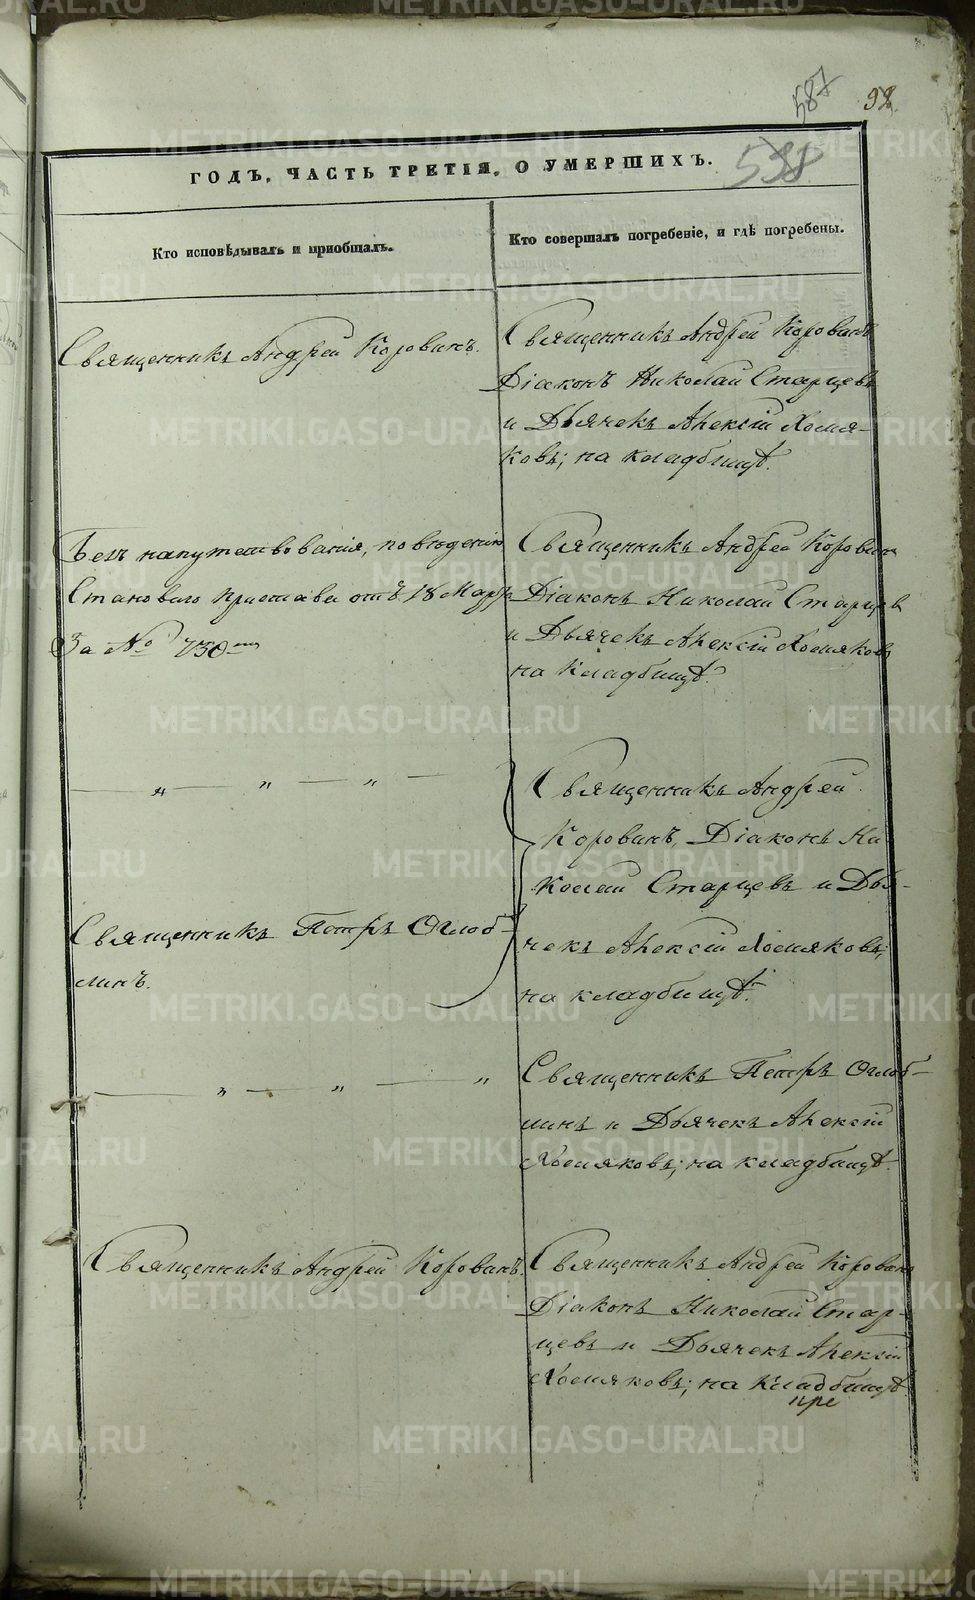 587
92.
538
ГОДЪ. ЧАСТЬ ТРЕТІЯ, О УМЕРШИХЪ.
Кто исповѣдывалъ и пріобщалъ.
Кто совершалъ погребеніе, и гдѣ погребены.
Священникъ Андрей Коровинъ.
Священникъ Андрей Коровинъ
Діаконъ Николай Старцевъ
и Дьячекъ Алексій Хомя-
ковъ; на кладбищѣ.
Безъ напутствованія, по вѣденію
Становаго Пристава отъ 18 Марта
За № 730-мъ
Священникъ Андрей Коровин
Діаконъ Николай Старцев
и Дьячекъ Алексій Хомяковъ
на Кладбищѣ.
— „ — „ — „ —
Священникъ Петръ Оглоб-
линъ.
Священникъ Андрей
Коровинъ, Діаконъ Ни
колай Старцевъ и Дья-
чекъ Алексій Хомяковъ;
на кладбищѣ.
— „ — „ — „
Священникъ Петръ Оглоб-
линъ и Дьячекъ Алексій
Хомяковъ; на кладбищѣ.
Священникъ Андрей Коровинъ.
Священникъ Андрей Коровинъ
Діаконъ Николай Стар-
цевъ и Дьячекъ Алексій
Хомяковъ; на Кладбищѣ.
при
METRIKI.GASO-URAL.RU